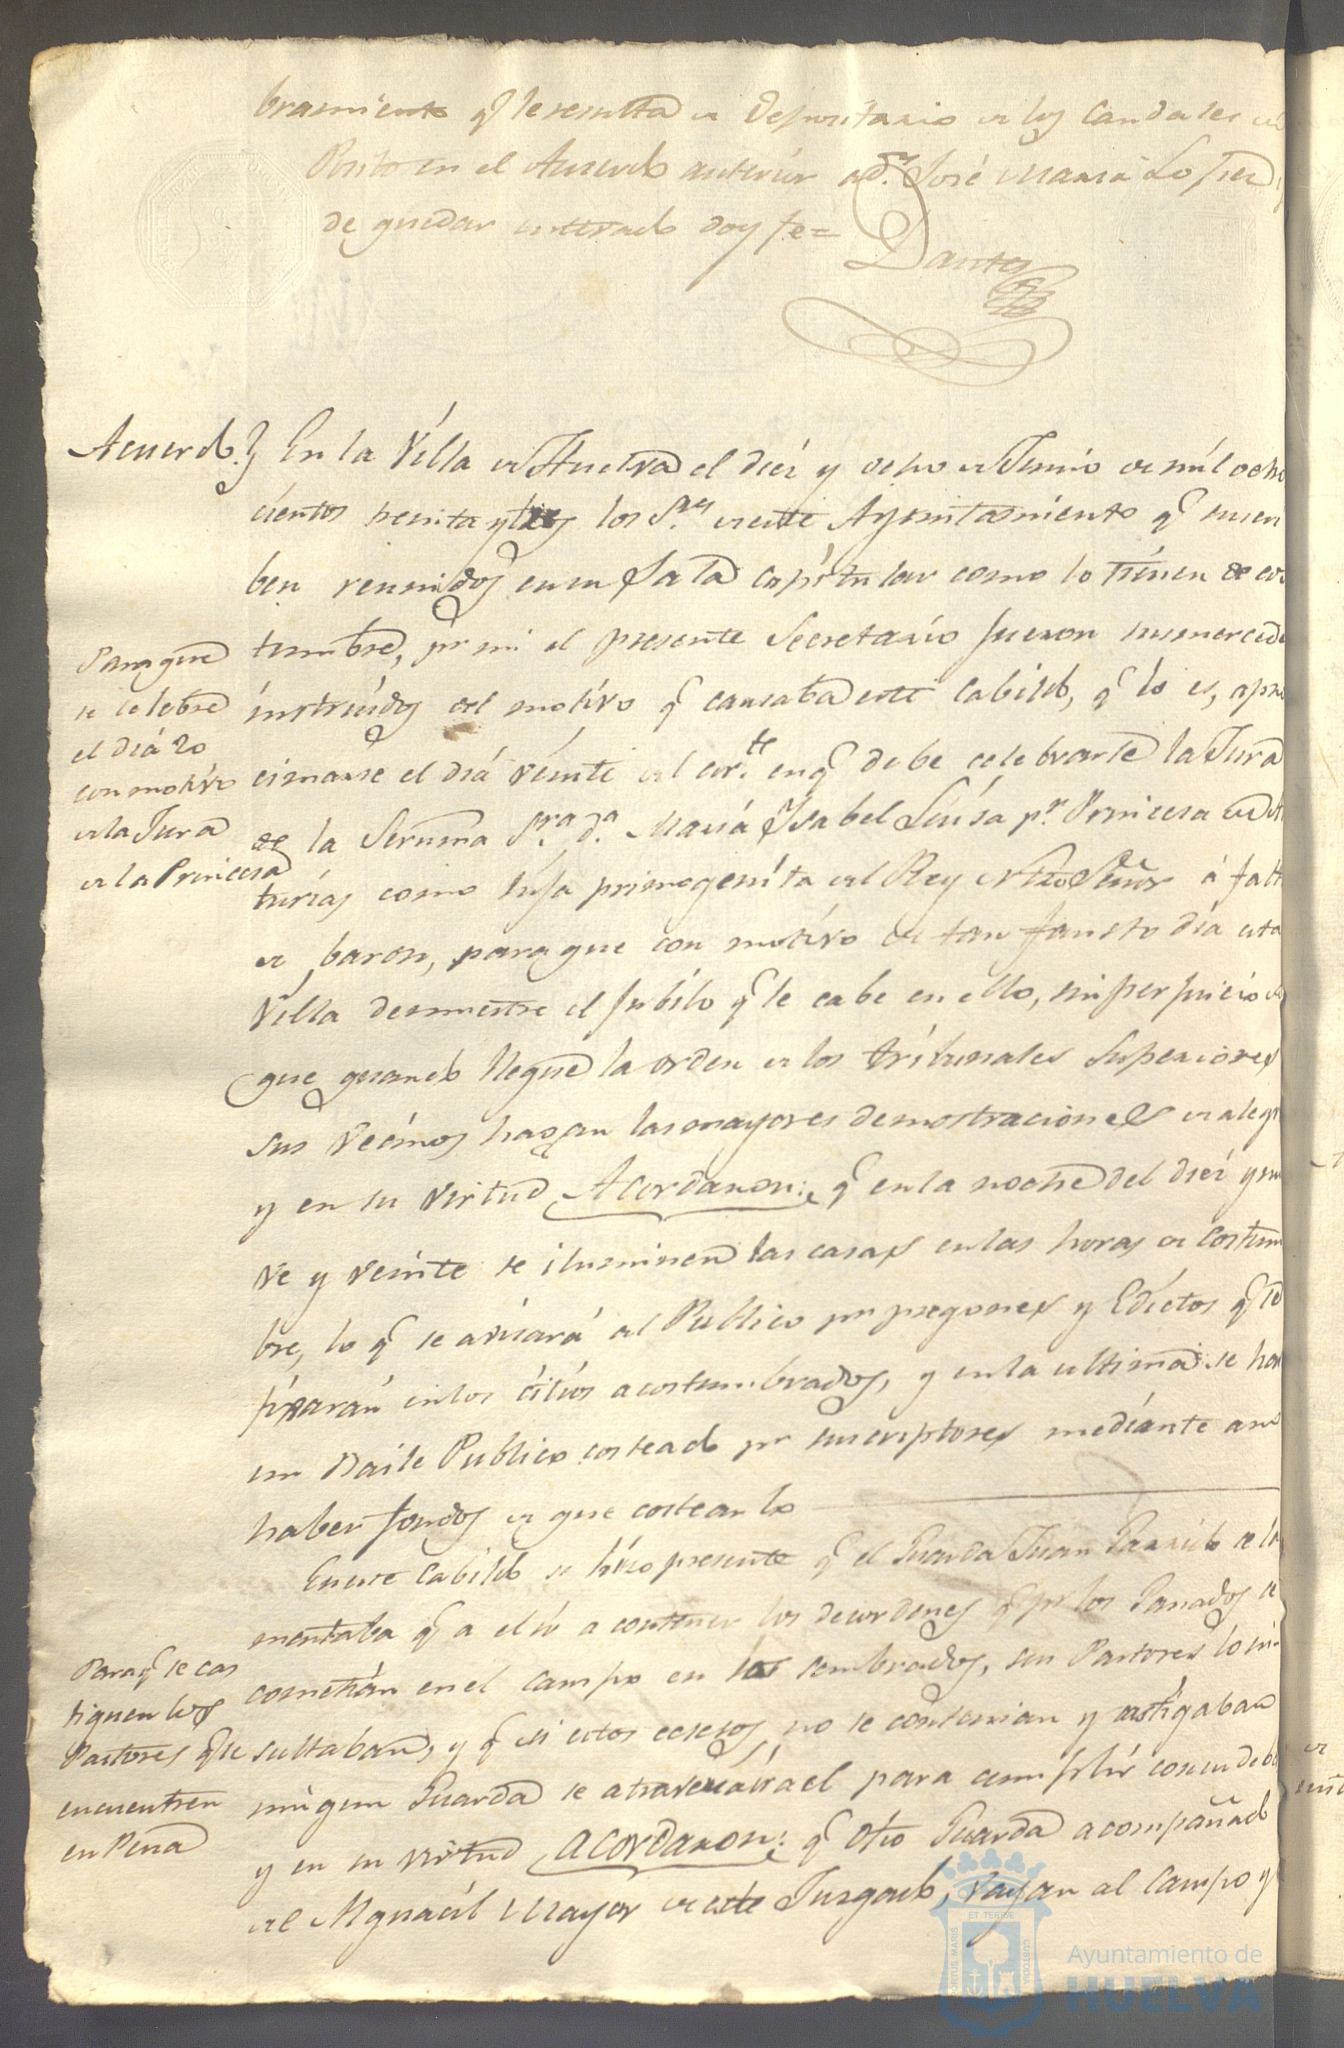 bramiento q.e le resulta de Depositario de los Caudales del
Posito en el Acuerdo anterior a d.n José Maria Lopez
de quedar enterado doy fe =
Dante
Acuerdo.} En la Villa de Huelva el diez y ocho de Junio de mil ocho
cientos treinta y tres los S.res de este Ayuntamiento q.e suscri
ben reunidos en su Sala Capitular como lo tienen de cos
tumbre, p.r mi el presente Secretario fueron sus mercedes
instruidos del motivo q.e causaba este Cabildo, q.e lo es, apro
cimarse el dia veinte del cor.te en q.e debe celebrarse la Jura
de la Serenma S.ra d.a Maria Ysabel Luisa p.r Princesa de As
turias como hija primogenita del Rey Ntro Señor á falta
de baron, para que con motivo de tan fausto dia esta
Villa demuestre el jubilo q.e le cabe en ello, sin perjuicio de
que quando llegue la orden de los tribunales Superiores
sus vecinos hagan las mayores demostraciones de alegr
y en su virtud Acordaron: q.e en la noche del diez y nue
ve y veinte se iluminen las casas en las horas de costum
bre, lo q.e se avisará al Publico p.r pregones y Edictos q.e se
fixarán en los citios acostumbrados, y en la ultima se hará
un Baile Publico costeado p.r suscriptores mediante a no
haber fondos de que costearlo
Para que
se celebre
el dia 20
con motivo
de la Jura
de la Princesa
En este Cabildo se hizo presente q.e el Guarda Juan Garrido se la
mentaba q.e a el ir a contener los desordenes q.e p.r los Ganados se
cometian en el campo en los sembrados, sus Pastores lo in-
sultaban, y q.e si estos ecsesos no se contenian y castigaban
ningun Guarda se atravesaira el para cumplir con su deber
y en su virtud acordaron: q.e otro Guarda acompañado
del Alguacil Mayor de este Juzgado, vayan al Campo y
Para q.e se cas
tiguen los
Pastores que se
encuentren
en Pena
PORTUS MARIS ET TERRE CUSTODIA
Ayuntamiento de
HUELVA